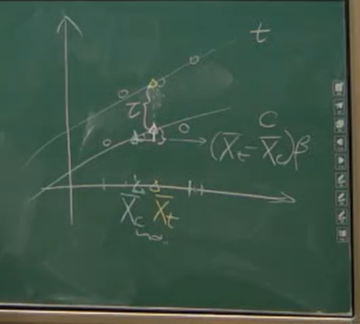 t
τ
C
(X̄t − X̄c)β
X̄c X̄t